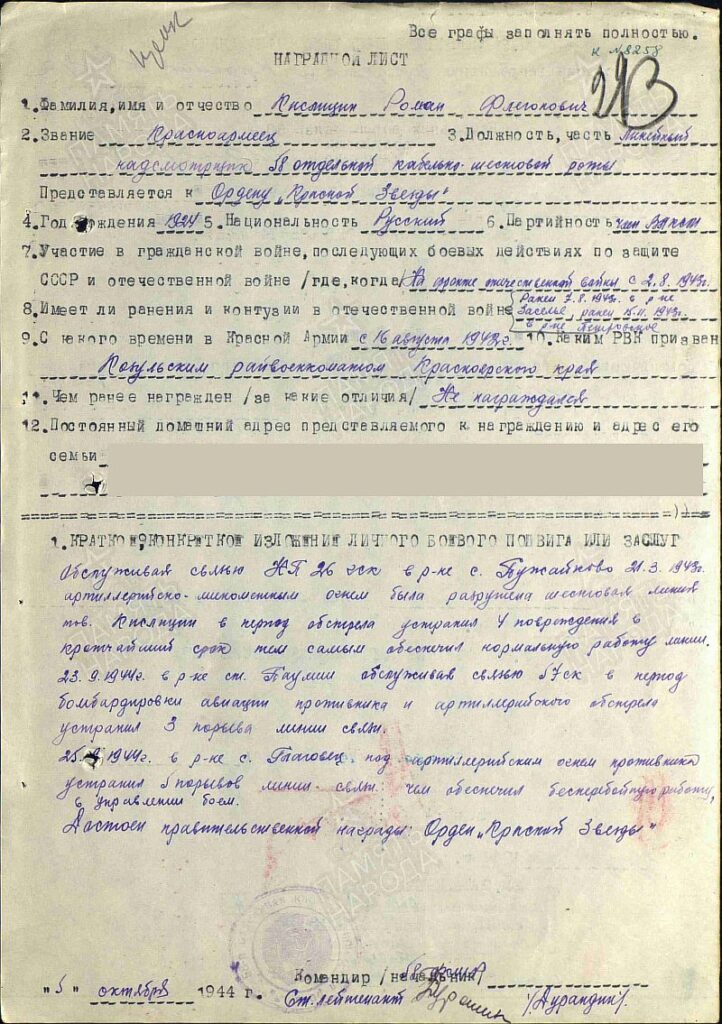 Все графы заполнять полностью.
к №8258
НАГРАДНОЙ ЛИСТ
293
1.Фамилия,имя и отчество Кислицин Роман Флегонович
2.Звание Красноармеец 3.Должность,часть Линейный
надсмотрщик 58 отдельной кабельно-шестовой роты
Представляется к Ордену "Красной Звезды"
4.Год рождения 1924 5.Национальность Русский 6.Партийность член
7.Участие в гражданской войне,последующих боевых действиях по защите
СССР и отечественной войне /где,когда/ На фронте отечественной войны с 2.8.1943г.
8.Имеет ли ранения и контузии в отечественной войне Ранен 7.8.1943г. в р-не
Заселье, ранен 15.11.1943г.
в р-не Петровское
9.С какого времени в Красной Армии с 16 августа 1942г. 10.Каким РВК призван
райвоенкоматом Красноярского края
11.Чем ранее награжден /за какие отличия/ Не награждался
12.Постоянный домашний адрес представляемого к награждению и адрес его
семьи
1.КРАТКОЕ,КОНКРЕТНОЕ ИЗЛОЖЕНИЕ ЛИЧНОГО БОЕВОГО ПОДВИГА ИЛИ ЗАСЛУГ
Обслуживая связью НП 26 гск в р-не с. 21.3.1943г.
артиллерийско-минометным огнем была разрушена шестовая линия
тов. Кислицин в период обстрела устранил 4 повреждения в
кротчайший срок тем самым обеспечил нормальную работу линии.
23.9.1944г. в р-не ст. обслуживая связью 57ск в период
бомбардировки авиации противника и артиллерийского обстрела
устранил 3 порыва линии связи.
25. 1944г. в р-не с. под артиллерийским огнем противника
устранил 5 порывов линии связи чем обеспечил бесперебойную работу,
в управлении боем.
Достоин правительственной награды: Орден "Красной Звезды"
Командир /начальник/ 58
"5" октября 1944 г. Ст.лейтенант /Дурандин/.
ПАМЯТЬ
НАРОДА